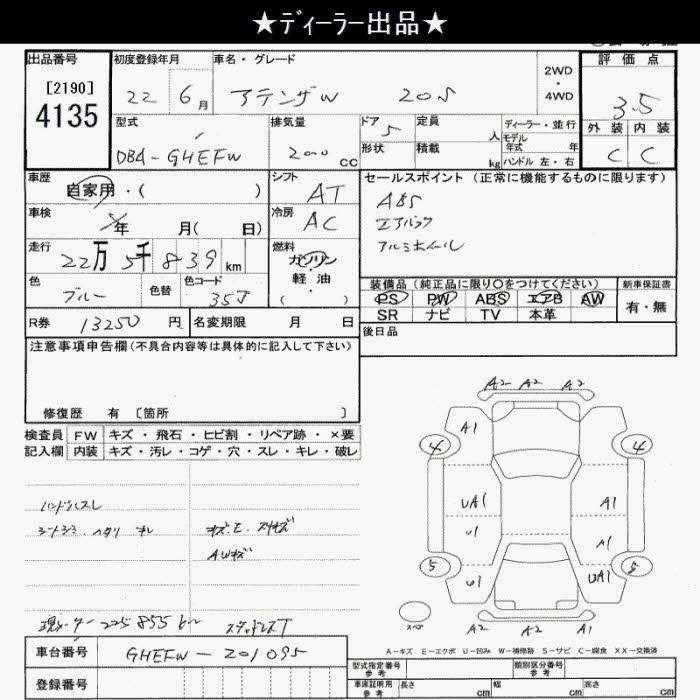 ★ディーラー出品★
出品番号 初度登録年月 車名・グレード 2WD・4WD 評価点
[2190] 4135 22 6月 アテンザW 20S 3.5
型式 排気量 ドア 定員 人 ディーラー・並行 外装 内装
DBA-GHEFW 2000cc 5 形状 積載 kg モデル年式 年 ハンドル 左・右 C C
車歴 自家用・( ) シフト AT セールスポイント (正常に機能するものに限ります)
車検 年 月( 日) 冷房 AC ABS
エアバック
アルミホイール
走行 22万5千839km 燃料 ガソリン・軽油・( )
色 ブルー 色替 色コード 35J
装備品 (純正品に限り○をつけてください) 新車保証書
PS PW ABS エアB AW 有・無
SR ナビ TV 本革
R券 13250円 名変期限 月 日 後日品
注意事項申告欄 (不具合内容等は具体的に記入して下さい)
修復歴 有 [箇所 ]
検査員記入欄 FW キズ・飛石・ヒビ割・リペア跡・×要
内装 キズ・汚レ・コゲ・穴・スレ・キレ・破レ
ハンドルスレ
シートシミ.ヘタリ キズ.E.スリキズ
AWキズ
現メーター225855km スタッドレスT
車台番号 GHEFW-201095
登録番号
A2 A2 A2
A1
4 4
UA1 A1
U1 A1
5 5
U1 UA1
A2 A2 A1
スペア
A-キズ E-エクボ U-凹ミ W-補修跡 S-サビ C-腐食 XX-交換済
型式指定番号 参考 類別区分番号 参考
車庫証明用 参考 長さ cm 幅 cm 高さ cm